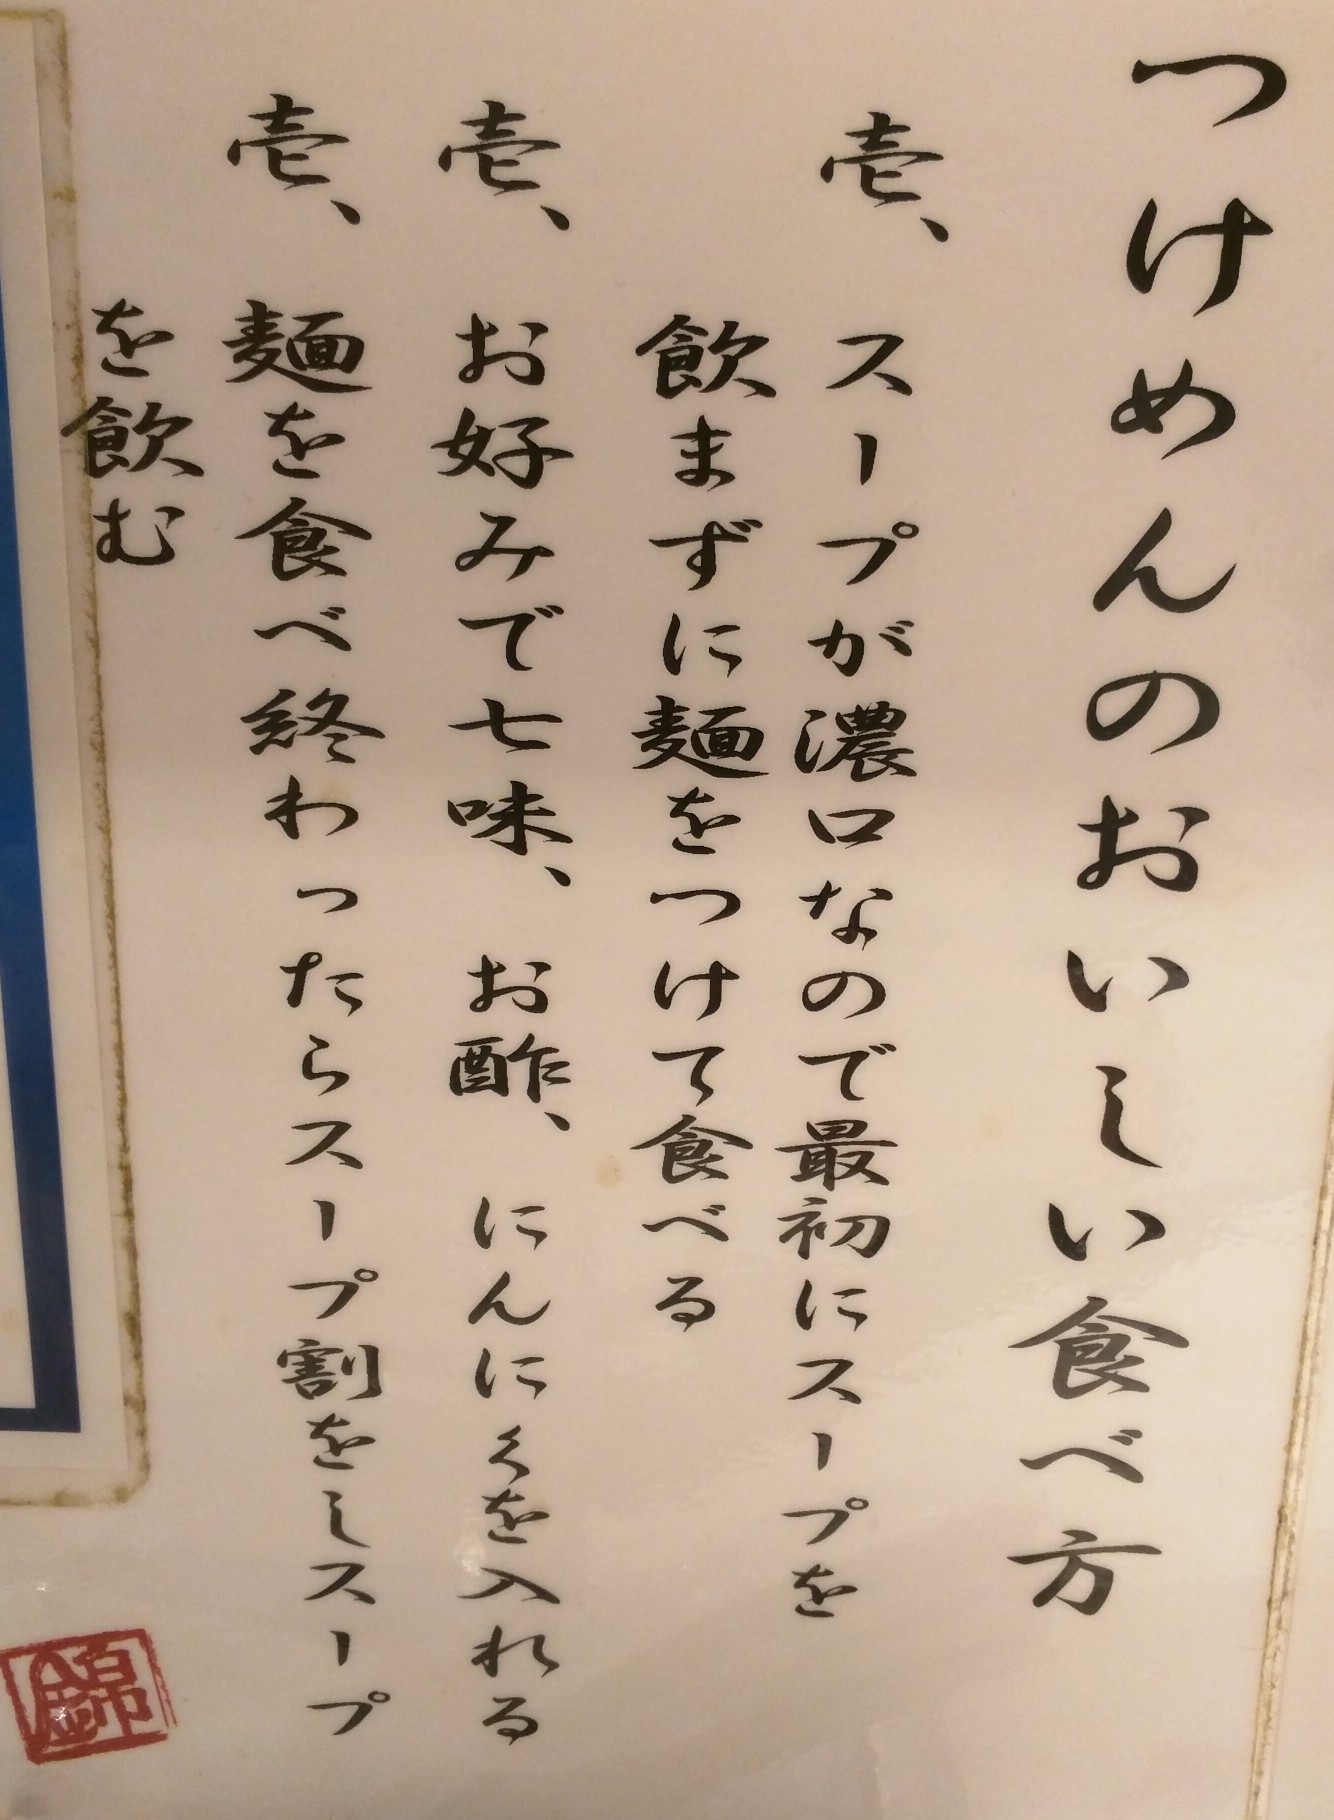 つけめんのおいしい食べ方
壱、スープが濃口なので最初にスープを
飲まずに麺をつけて食べる
壱、お好みで七味、お酢、にんにくを入れる
壱、麺を食べ終わったらスープ割をしスープ
を飲む
錦